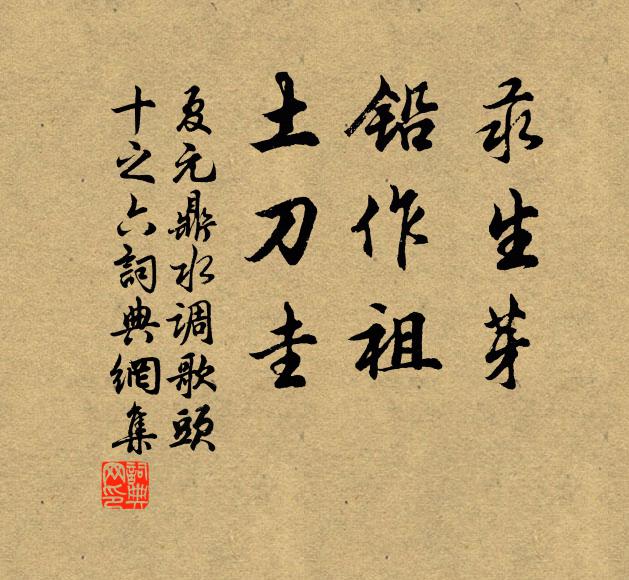 汞生芽
铅作祖
土刀圭
夏元鼎水调歌頭
十之六詞典網集
詞典网印